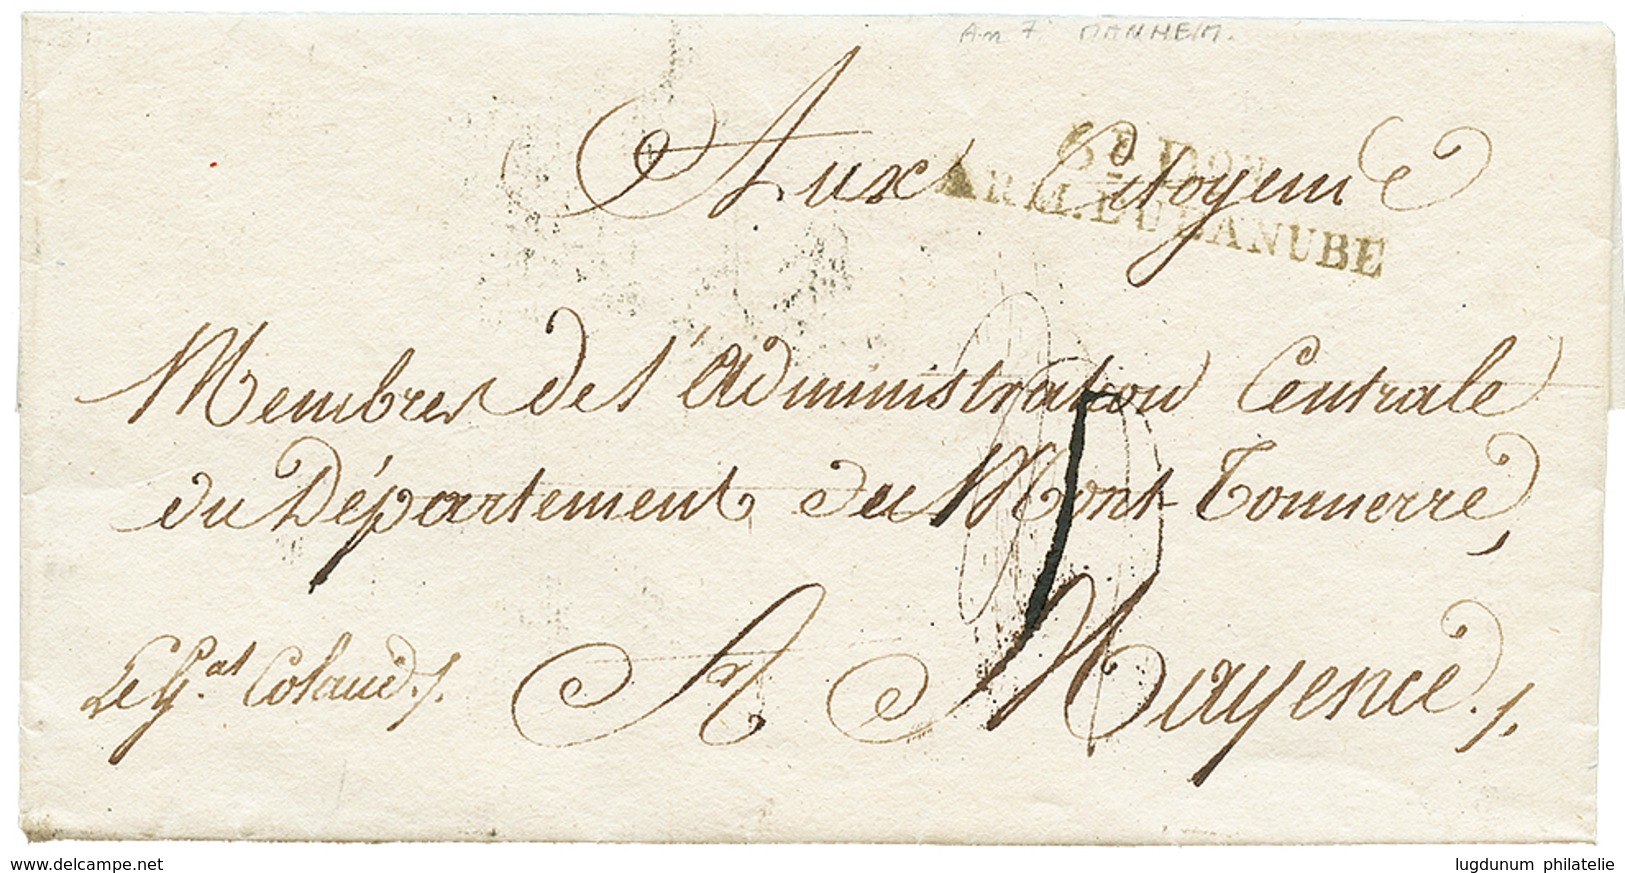 An 7 MANHEIM.
Aux Citoyens
ARM. DU DANUBE
Membres de l'Administration Centrale
du Département du Mont-Tonnerre,
A Mayence.
Le G.al Colaud.
www.delcampe.net
lugdunum philatelie